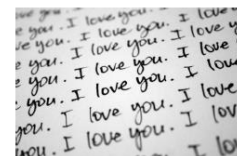 you. I love you. I love
you. I love you. I love you
you. I love you. I love you
you. I love you. I love
you. I love you. I love
you. I love you. I
you. I love you. I
I love you. I